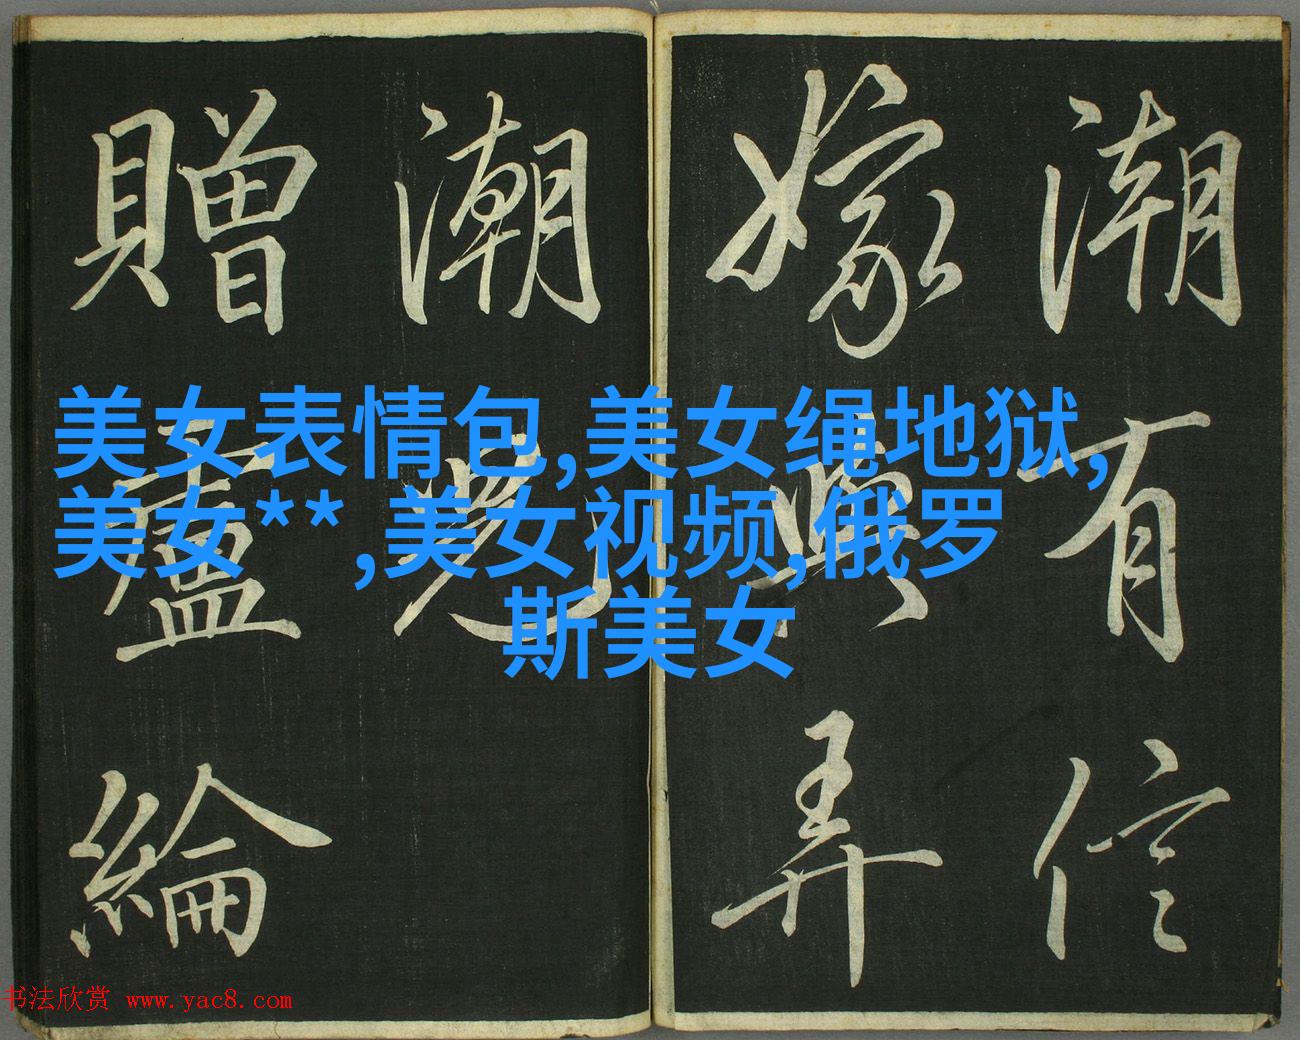 潮有信
嫁與弄
潮兒
贈盧綸
美女表情包,美女绳地狱,
美女**,美女视频,俄罗
斯美女
书法欣赏 www.yac8.com